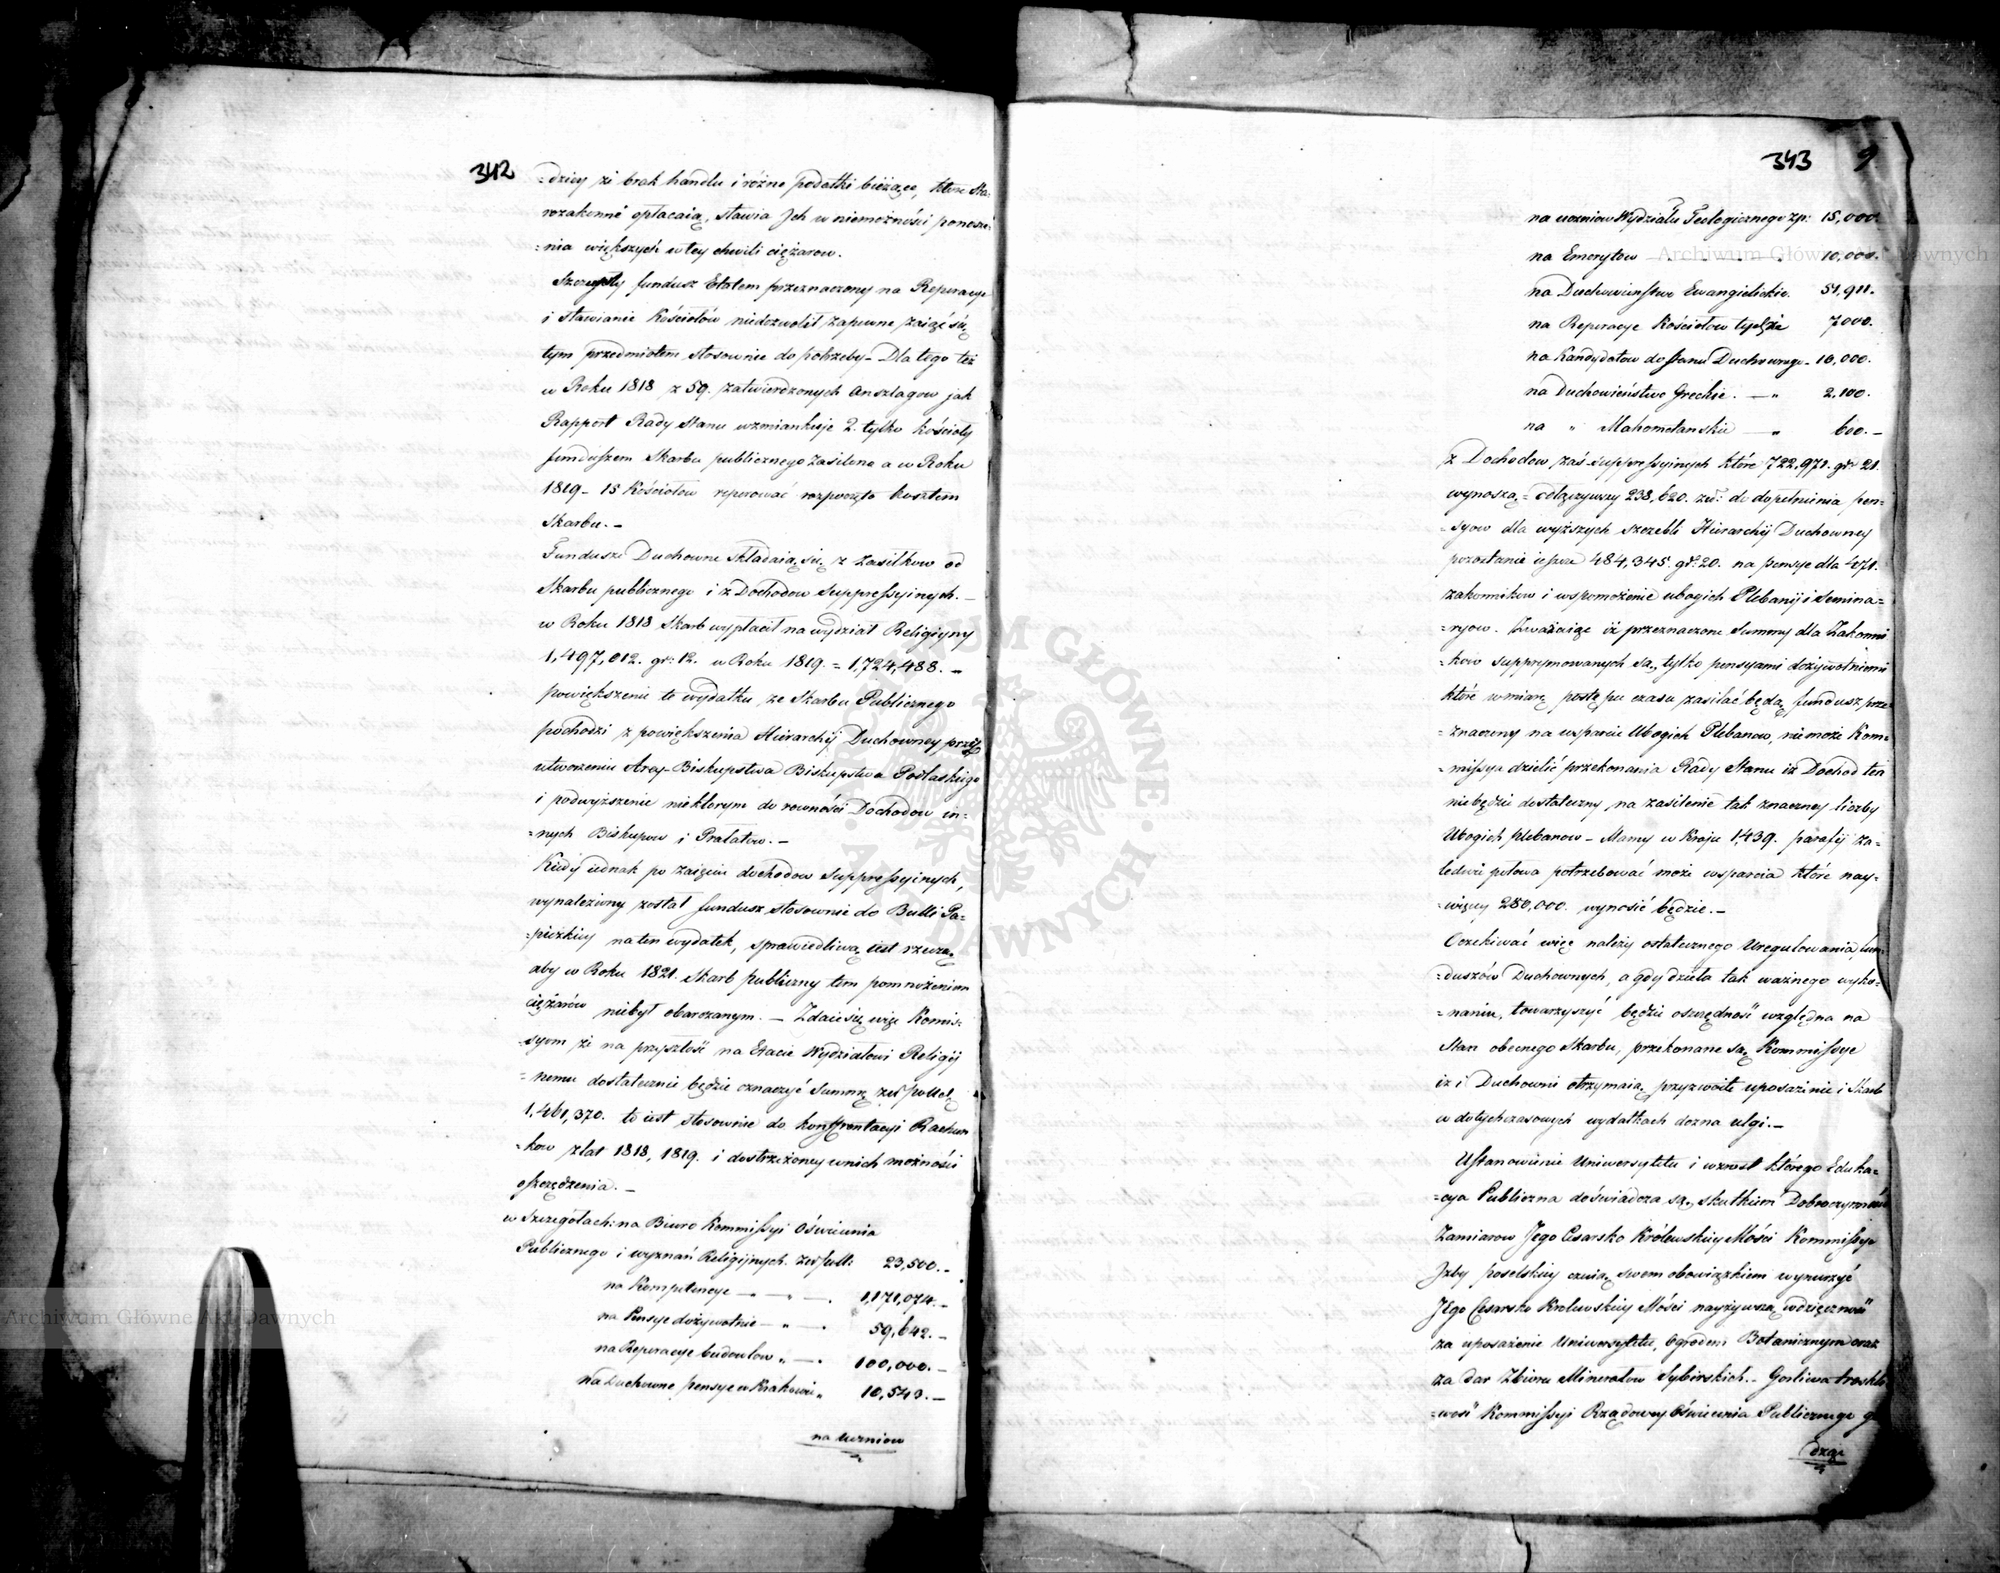 342
=dziey że brak handlu i różne podatki bieżące, które Sta=
rozakonne opłacaią, stawia Ich w niemożności ponosze=
=nia większych w tey chwili ciężarow.
Szczupły fundusz Etatem przeznaczony na Reperacye
i stawianie Kościołów niedozwolił zapewne zaiąć się
tym przedmiotem stosownie do potrzeby – Dla tego też
w Roku 1818 z 59. zatwierdzonych Anszlagow jak
Rapport Rady Stanu wzmiankuje 2. tylko kościoły
funduszem Skarbu publicznego zasilono a w Roku
1819 – 15 Kościołow reperować rozpoczęto kosztem
Skarbu. –
Fundusze Duchowne składaią się z zasiłkow od
Skarbu publicznego i z Dochodow Suppressyinych. –
w Roku 1818 Skarb wypłacił na wydział Religiyny
1,497,012. gr: 12. w Roku 1819. = 1,724,488. –
powiększenie to wydatku ze Skarbu Publicznego
pochodzi z powiększenia Hierarchij Duchowney przez
utworzenie Arcy-Biskupstwa Biskupstwa Podlaskiego
i podwyższenie niektorym do rowności Dochodow in=
=nych Biskupow i Prałatow. –
Kiedy iednak po zaięciu dochodow Suppressyinych,
wynaleziony został fundusz stosownie do Bulli Pa=
=piezkiey na ten wydatek, sprawiedliwą iest rzeczą
aby w Roku 1821. Skarb publiczny tem pomnożeniem
ciężarów niebył obarczanym. – Zdaie się więc Kommis=
=syom że na przyszłość na Etacie Wydziałowi Religij
=nemu dostatecznie będzie oznaczyć Summę zł: polskich
1,461,370. to iest stosownie do konfrontacyi Rachun
=kow z lat 1818, 1819. i dostrzeżoney w nich możności
oszczędzenia. –
w Szczegołach: na Biuro Kommissyi Oświecenia
Publicznego i wyznań Religijnych. zł: poll: 23,500. –
na Kompetencye – " – 1,171,074. –
na Pensye dożywotnie – " – 59,642. –
na Reperacye budowlow " – 100,000. –
na Duchowne pensye w Krakowie " 10,543. –
na Uczniow
343 9
na uczniow Wydziału Teologicznego zp: 15,000.
na Emerytow " 10,000.
na Duchowieństwo Ewangielickie. 51,911.
na Reperacye Kościołow tychże 7000.
na Kandydatow do Stanu Duchownego – 10,000.
na Duchowieństwo Greckie. – " 2,100.
na " Mahometanskie – " 600. –
z Dochodow zaś Suppressyinych które 722,971. gr: 21.
wynoszą = odłączywszy 238,620. zł: do dopełnienia pen=
=syow dla wyższych szczebli Hierarchij Duchowney
pozostanie ieszcze 484,345. gr: 20. na pensye dla 471.
zakonnikow i wspomożenie ubogich Plebanij i Semina=
=ryow. Zważaiąc iż przeznaczone Summy dla Zakonni
=kow suppremowanych są tylko pensyami dożywotniemi
które w miarę postępu czasu zasilać będą fundusz prze
=znaczony na wsparcie Ubogich Plebanow, niemoże Kom=
=missya dzielić przekonania Rady Stanu iż Dochod ten
niebędzie dostateczny na zasilenie tak znaczney liczby
Ubogich plebanow – Mamy w Kraju 1,439. parafij za=
ledwie połowa potrzebować może wsparcia które nay=
=więcey 280,000. wynosić będzie. –
Oczekiwać więc należy ostatecznego Uregulowania fun=
=duszów Duchownych, a gdy dzieła tak ważnego wyko=
=naniu, towarzyszyć będzie oszczędność względna na
Stan obecnego Skarbu, przekonane są Kommissye
iż i Duchowni otrzymaią przyzwoite uposażenie i Skarb
w dotychczasowych wydatkach dozna ulgi. –
Ustanowienie Uniwersytetu i wzrost którego Eduka=
=cya Publiczna doświadcza są skutkiem Dobroczynnych
Zamiarow Jego Cesarsko Królewskiey Mości Kommissye
Izby poselskiey czuią swem obowiązkiem wynurzyć
Jego Cesarsko Krolewskiey Mości nayżywszą wdzięczność
za uposażenie Uniwersytetu, Ogrodem Botanicznym oraz
za dar Zbioru Minerałow Sybirskich. – Gorliwa troskli
=wość Kommissyi Rządowey Oświecenia Publicznego g
dzy